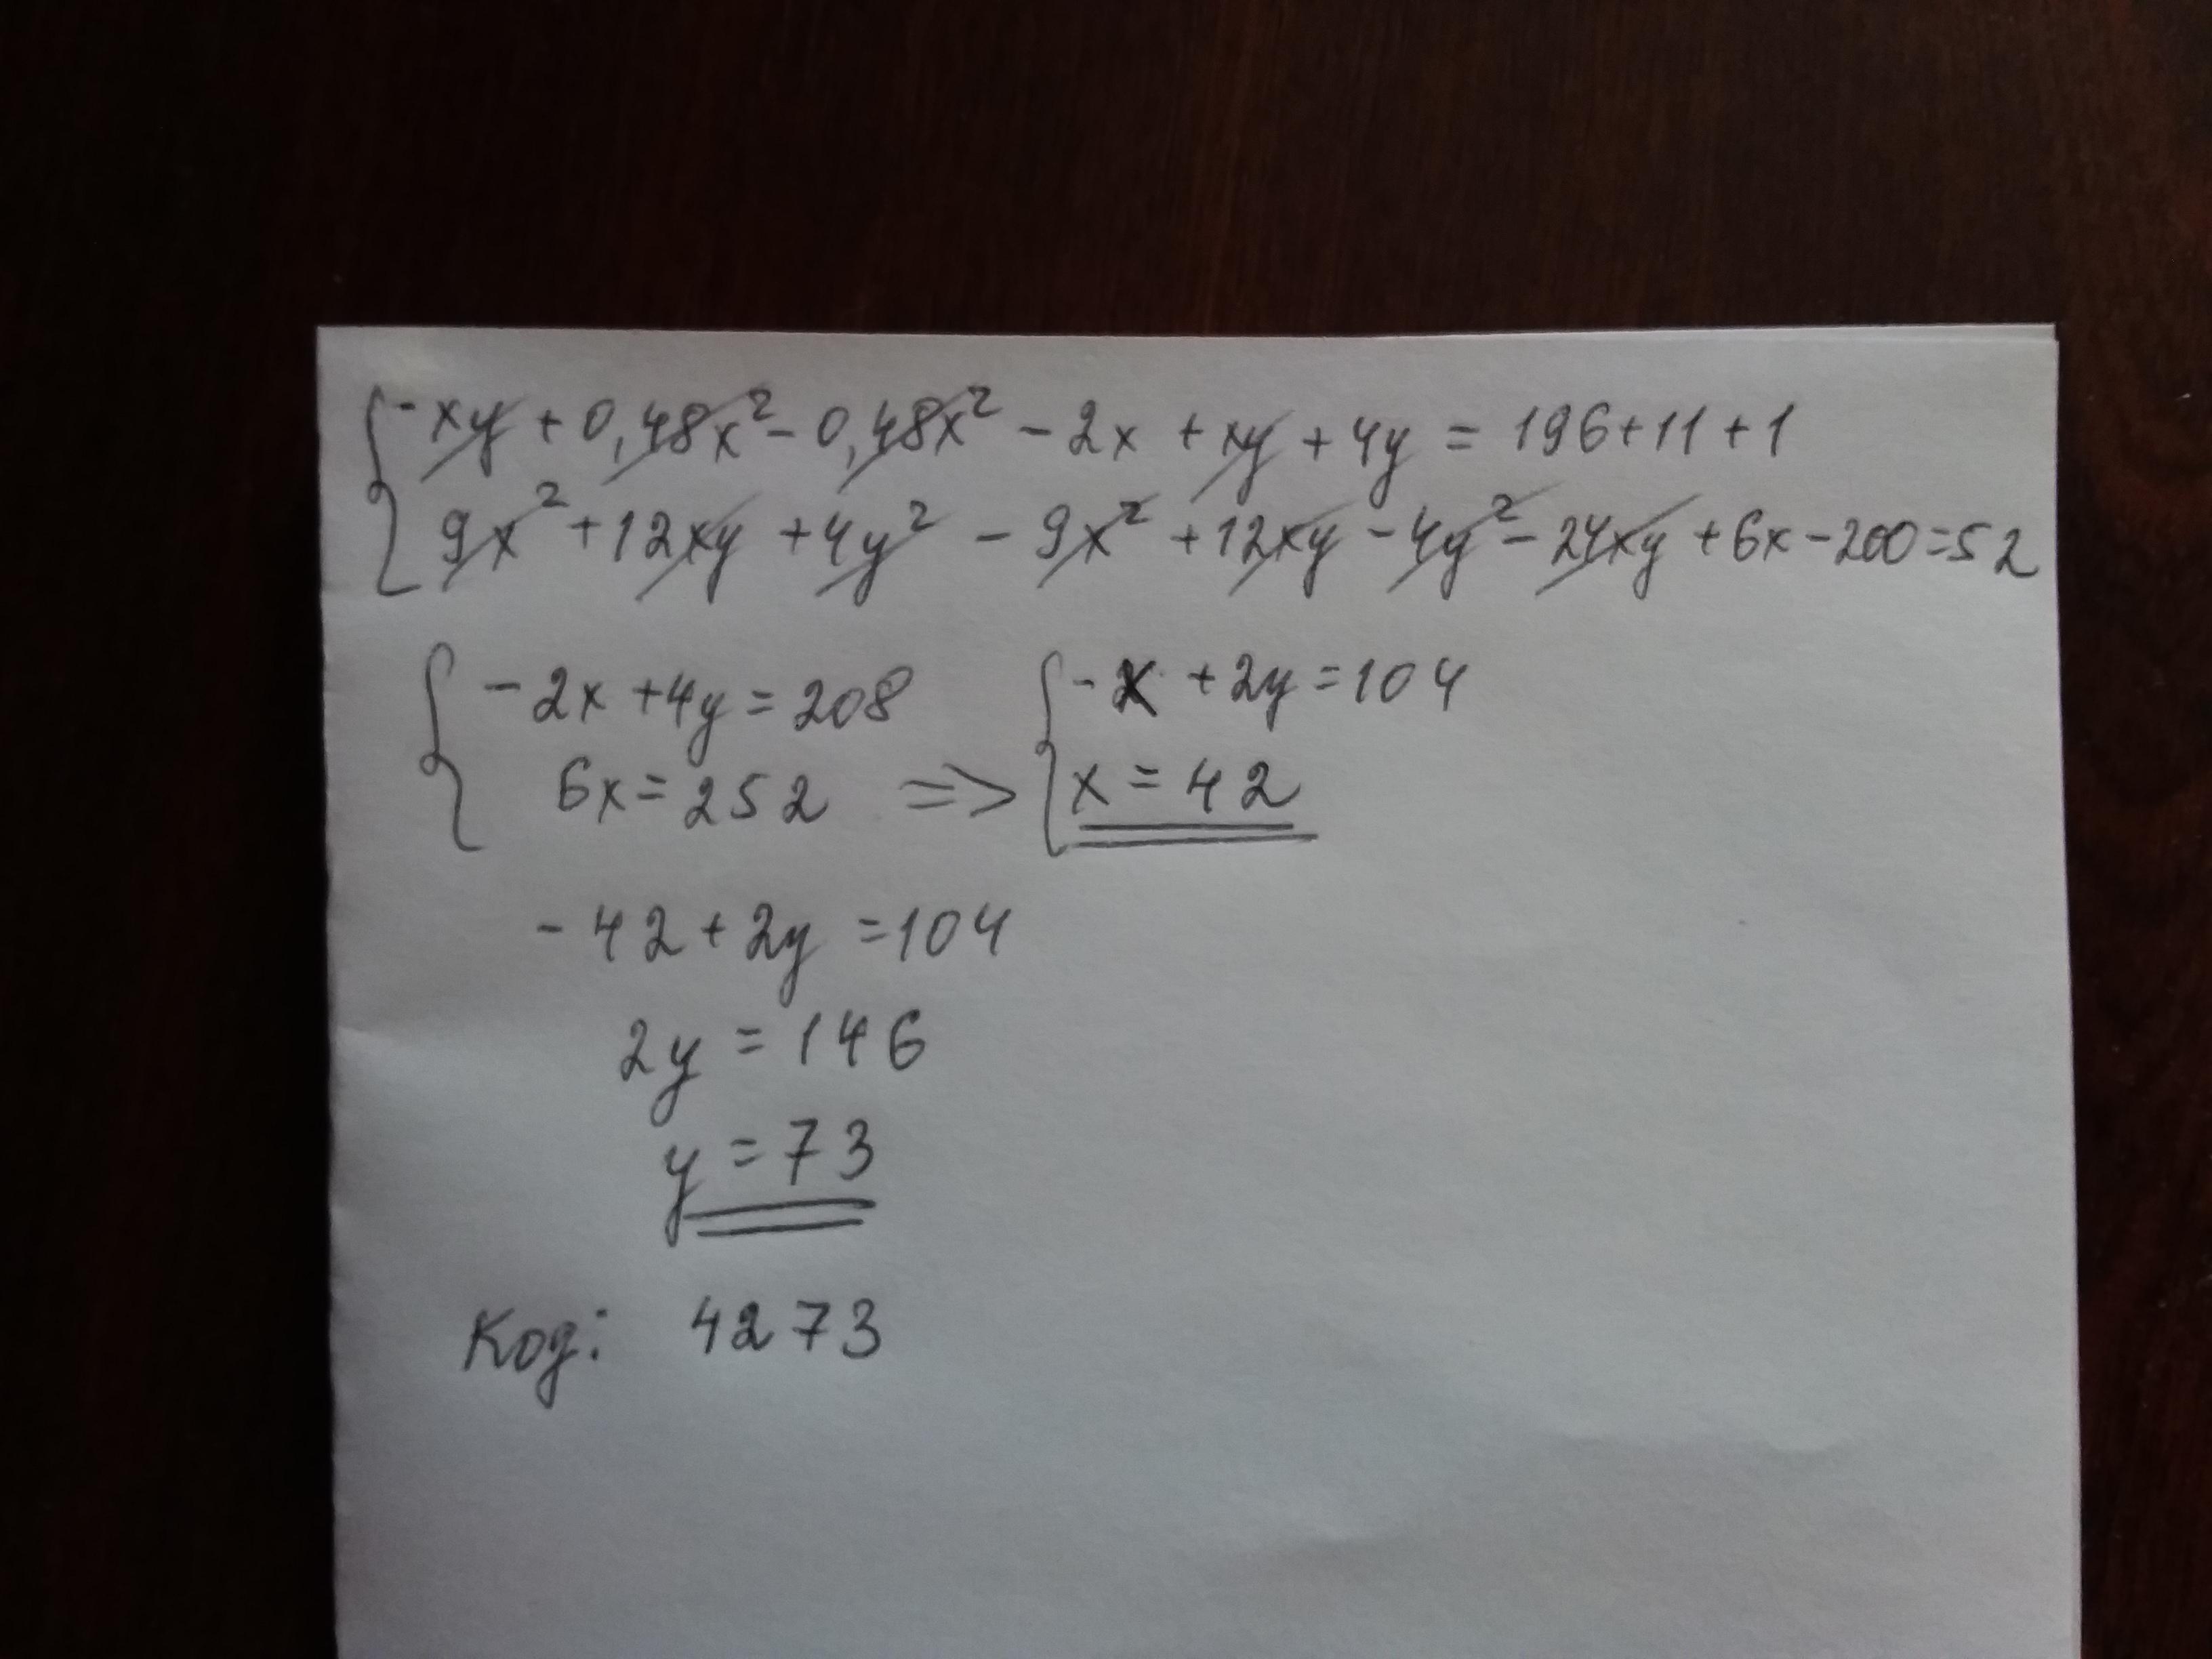 -xy + 0,48x² - 0,48x² - 2x + xy + 4y = 196+11+1
9x² + 12xy + 4y² - 9x² + 12xy - 4y² - 24xy + 6x - 200 = 52
-2x + 4y = 208 -x + 2y = 104
6x = 252 => x = 42
-42 + 2y = 104
2y = 146
y = 73
Код: 4273